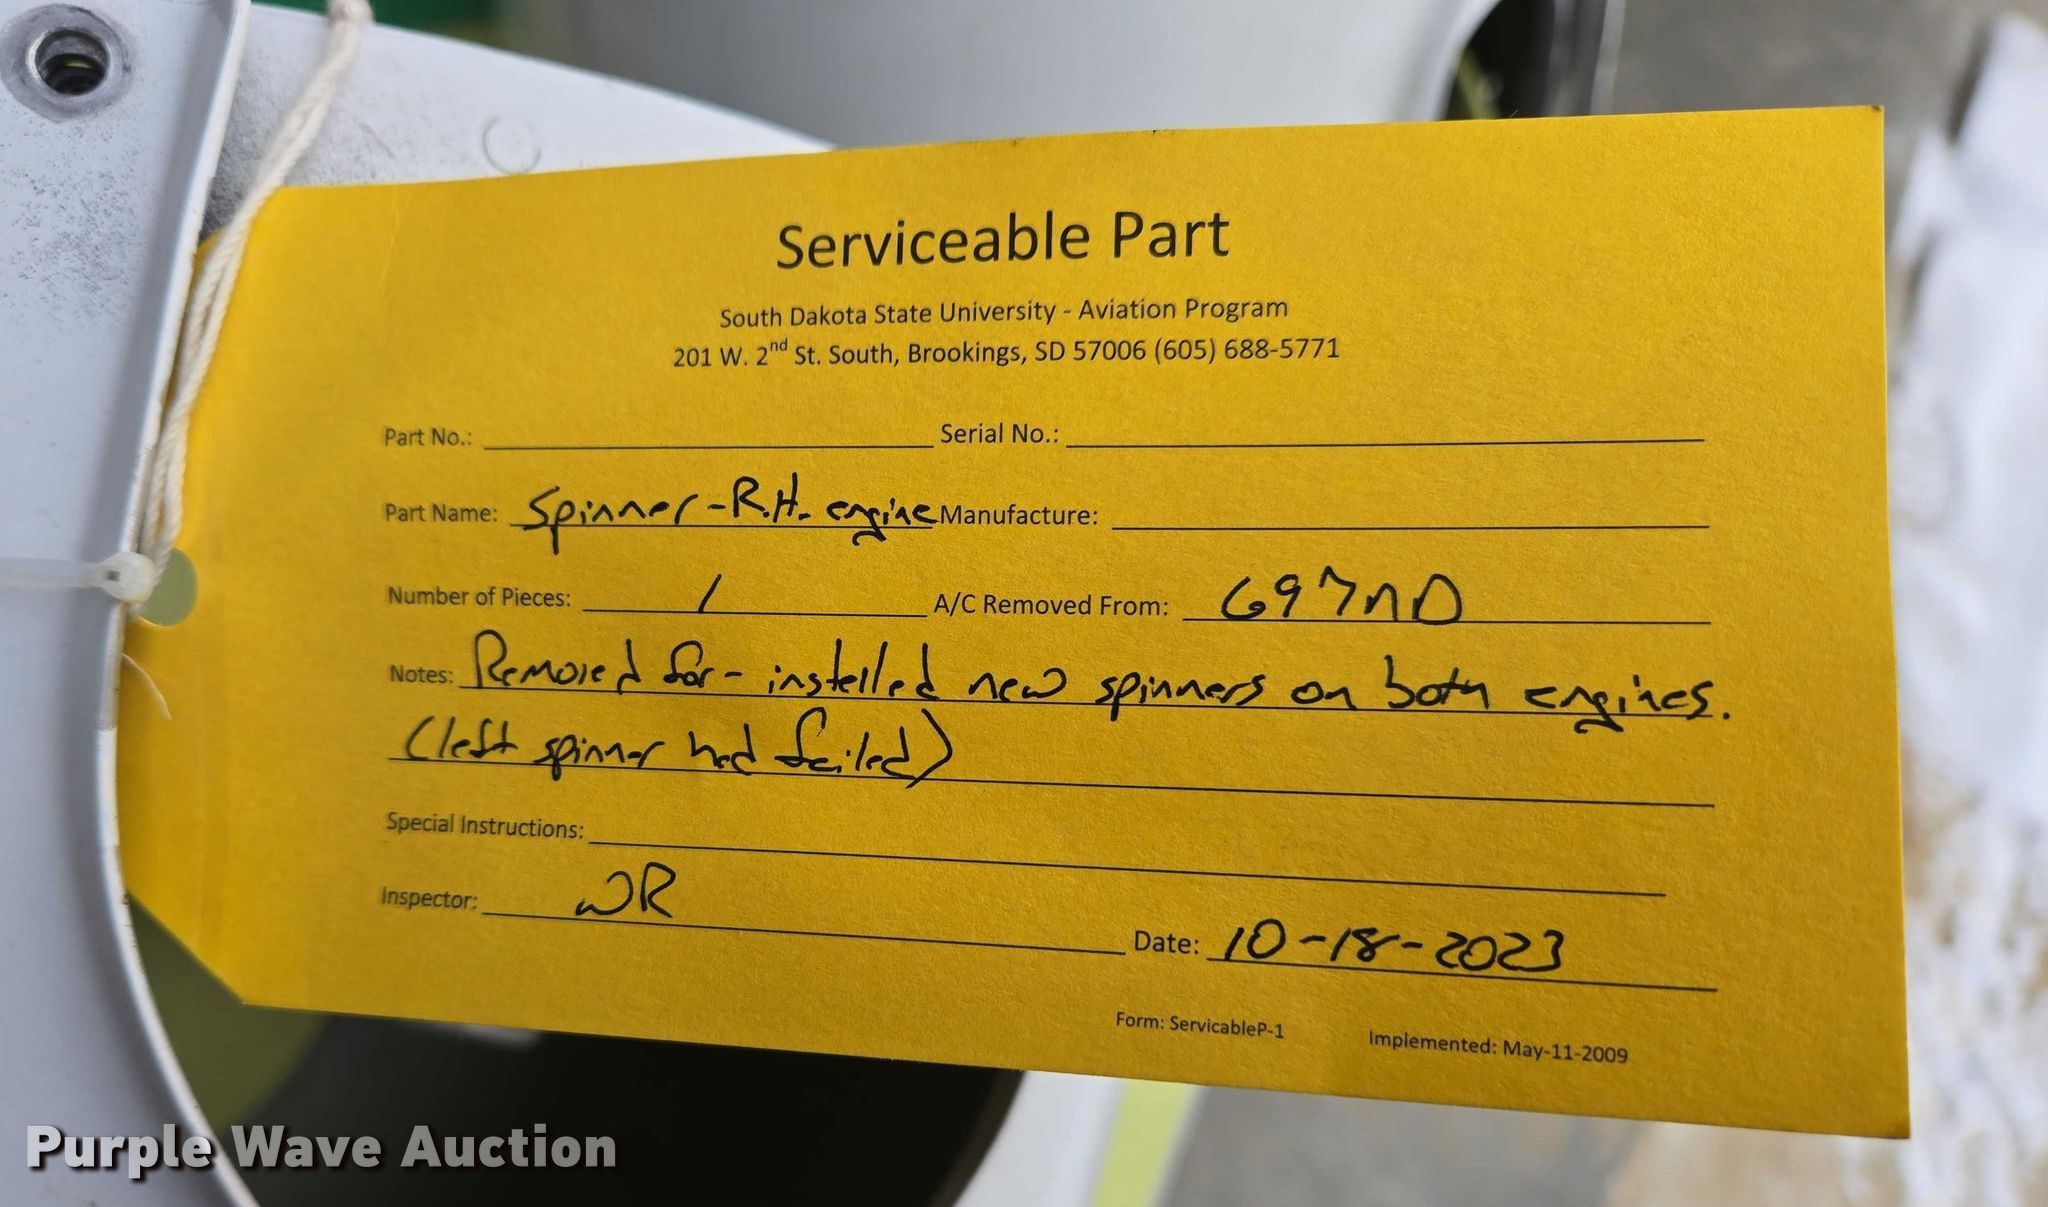 Serviceable Part
South Dakota State University - Aviation Program
201 W. 2nd St. South, Brookings, SD 57006 (605) 688-5771
Part No.: Serial No.:
Part Name: Spinner-R.H. engine Manufacture:
Number of Pieces: 1 A/C Removed From: 697ND
Notes: Removed for - installed new spinners on both engines.
(left spinner had failed)
Special Instructions:
Inspector: WR
Date: 10-18-2023
Form: ServicableP-1 Implemented: May-11-2009
Purple Wave Auction